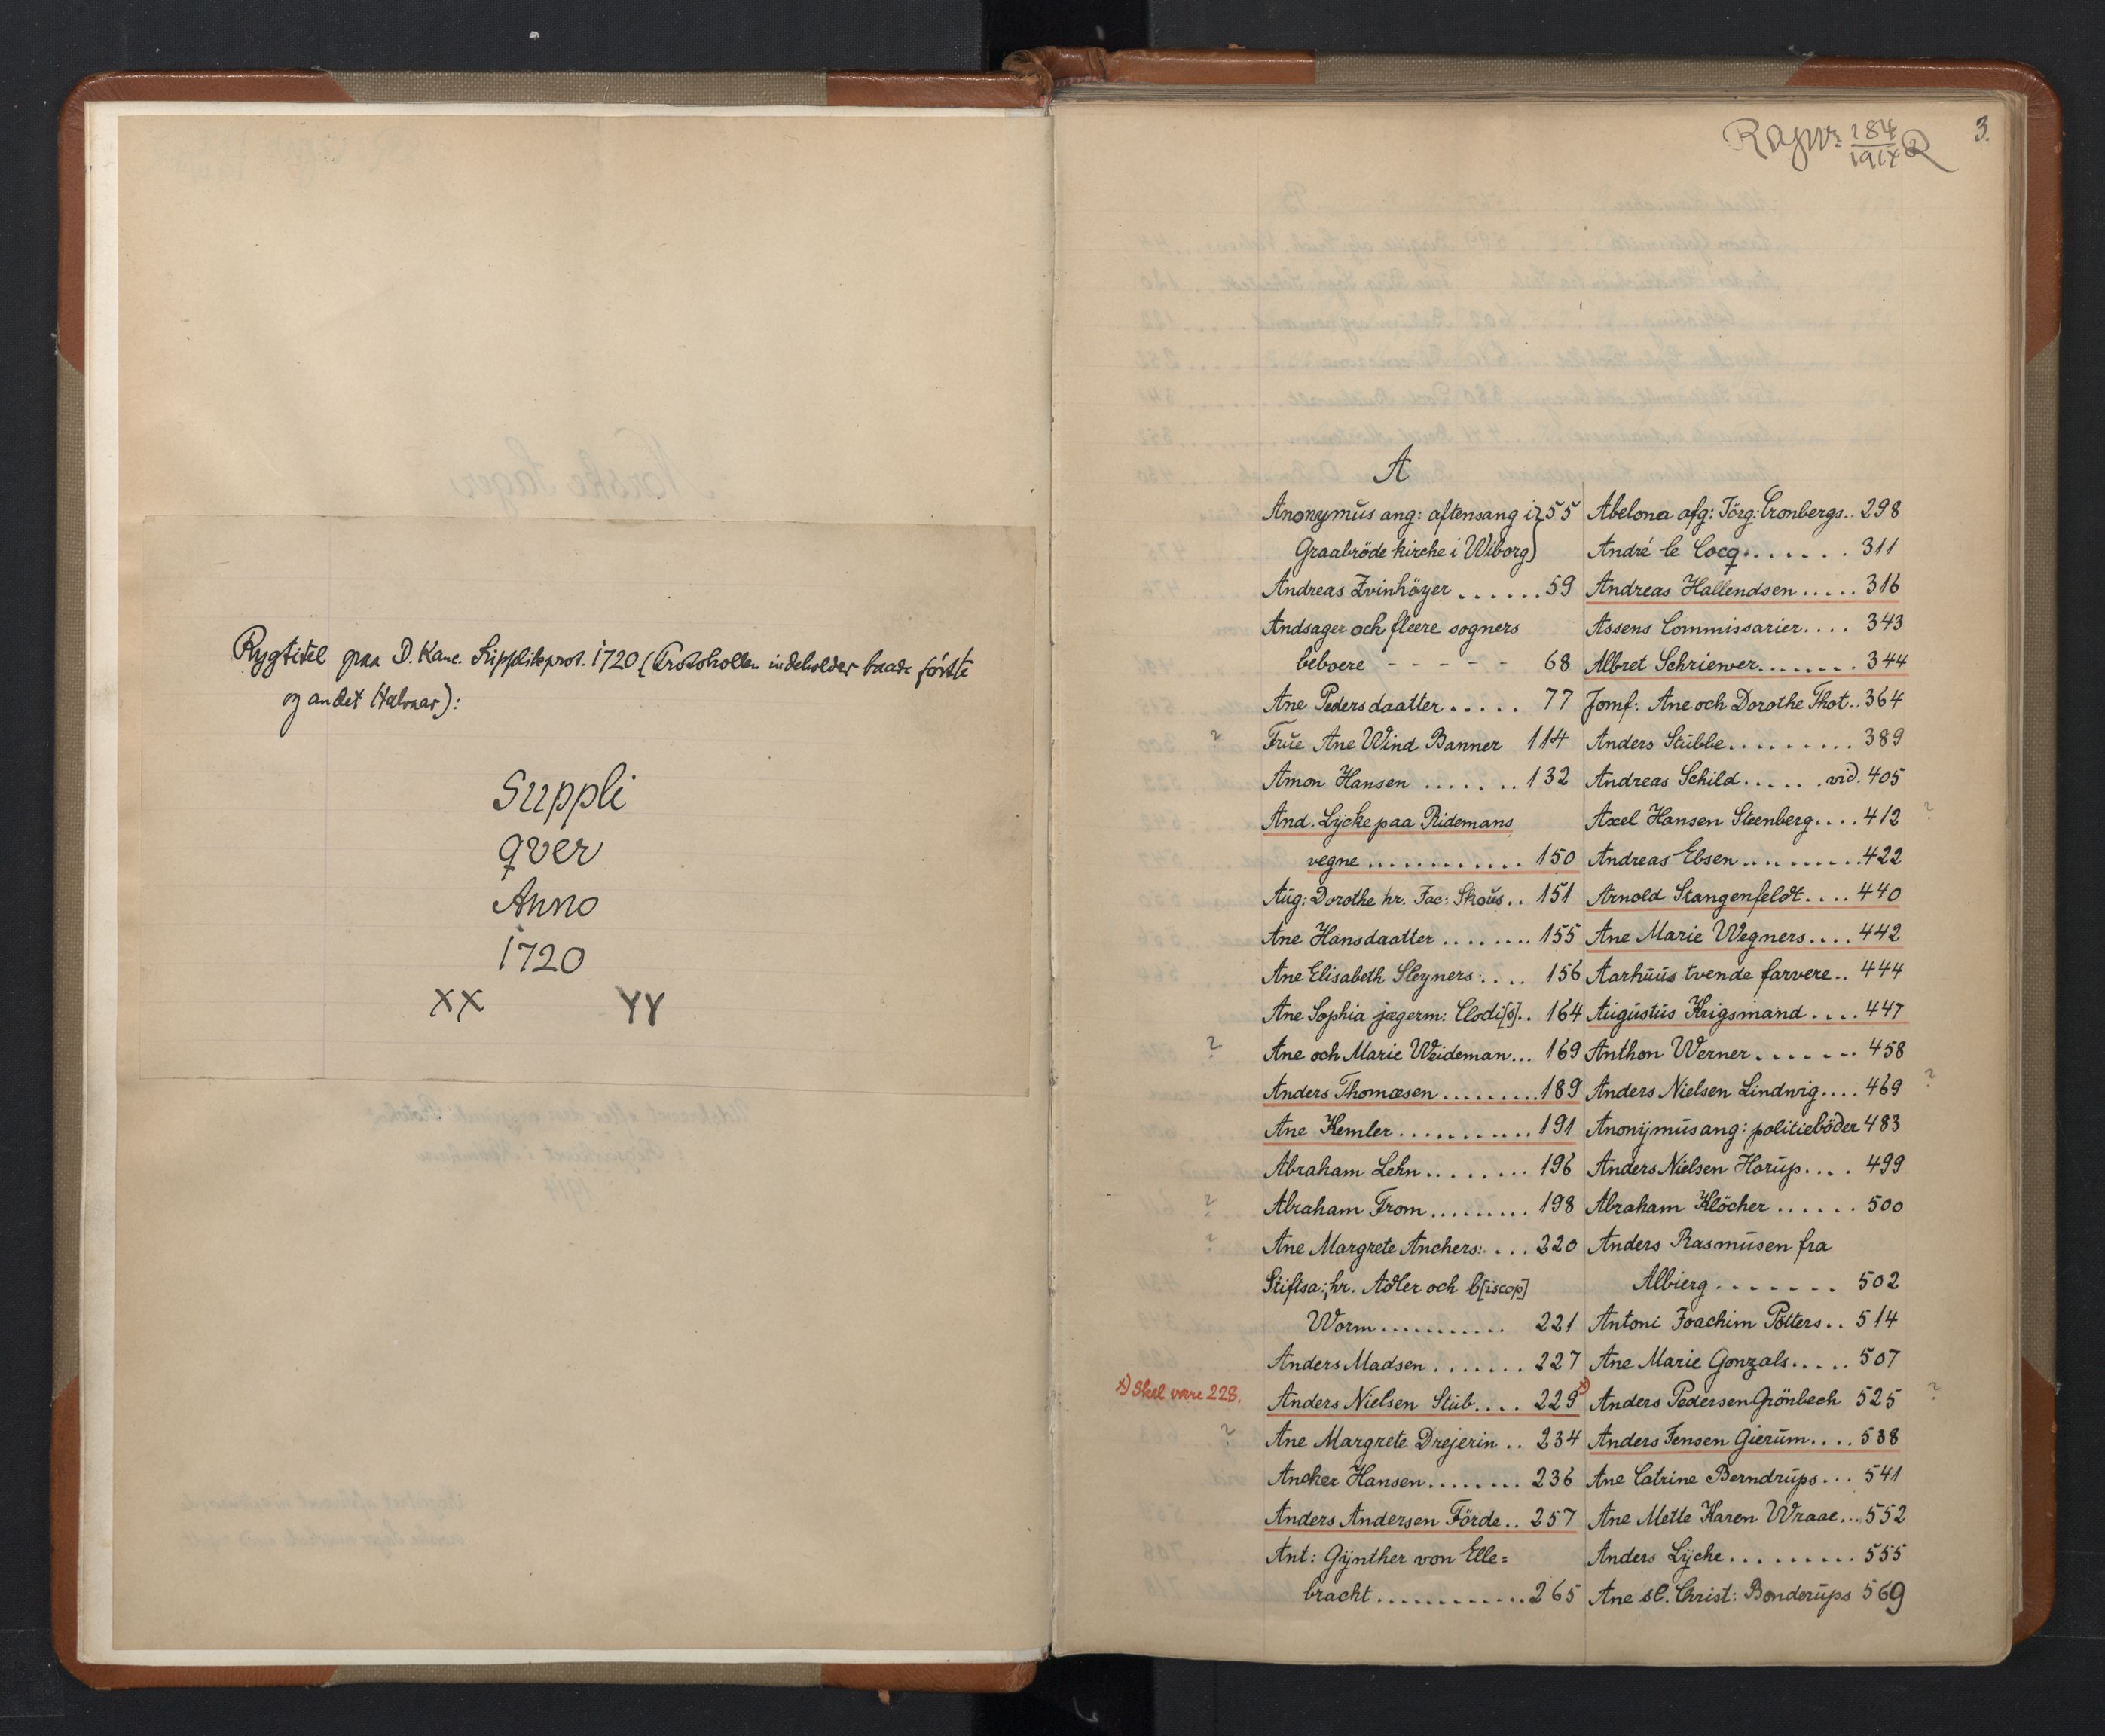 Rygtitel paa D. Kanc. Supplikprot. 1720 (Protokollen indeholder baade første
og andet Halvaar):
Suppli
qver
Anno
1720
XX YY
3.
284
1914
A
Anonymŭs ang: aftensang i 55
Graabröde kirche i Wiborg
Andreas Svinhöyer ...... 59
Andsager och fleere sogners
beboere - - - - - 68
Ane Pedersdaatter ..... 77
? Frŭe Ane Wind Banner 114
Amon Hansen ....... 132
And. Lÿcke paa Ridemans
vegne ............ 150
Aŭg: Dorothe hr. Jac: Skoŭs .. 151
Ane Hansdaatter ........ 155
Ane Elisabeth Sleyners: .... 156
Ane Sophia jægerm: Clodi[s] .. 164
? Ane och Marie Weideman ... 169
Anders Thomæsen ......... 189
Ane Kemler ........... 191
Abraham Lehn ........ 196
? Abraham From ......... 198
? Ane Margrete Anchers: .... 220
Stiftsa:, hr. Adler och b[iscop]
Worm ........... 221
Anders Madsen ....... 227
x) Skal være 228. Anders Nielsen Stŭb .... 229 x)
? Ane Margrete Drejerin .. 234
Ancher Hansen ........ 236
Anders Andersen Förde .. 257
Ant: Gÿnther von Elle=
bracht ............ 265
Abelona afg: Jörg: Cronbergs .. 298
André le Cocq ....... 311
Andreas Hallendsen ..... 316
Assens Commissarier .... 343
Albret Schriewer ....... 344
Jomf: Ane och Dorothe Thot .. 364
Anders Stŭbbe ......... 389
Andreas Schild ...... vid. 405
Axel Hansen Steenberg .... 412 ?
Andreas Ebsen ......... 422
Arnold Stangenfeldt .... 440
Ane Marie Wegners .... 442
Aarhŭŭs tvende farvere .. 444
Aŭgŭstŭs Krigsmand .... 447
Anthon Werner ....... 458
Anders Nielsen Lindwig .... 469 ?
Anonÿmŭs ang: politieböder 483
Anders Nielsen Horŭp .... 499
Abraham Klöcher ...... 500
Anders Rasmŭsen fra
Albierg ....... 502
Antoni Joachim Pötters .. 514
Ane Marie Gonzals ..... 507
Anders Pedersen Grönbech 525 ?
Anders Jensen Gierŭm .... 538
Ane Catrine Berndrŭps ... 541
Ane Mette Karen Wraae ... 552
Anders Lÿche ......... 555
Ane sl. Christ: Bonderŭps 569